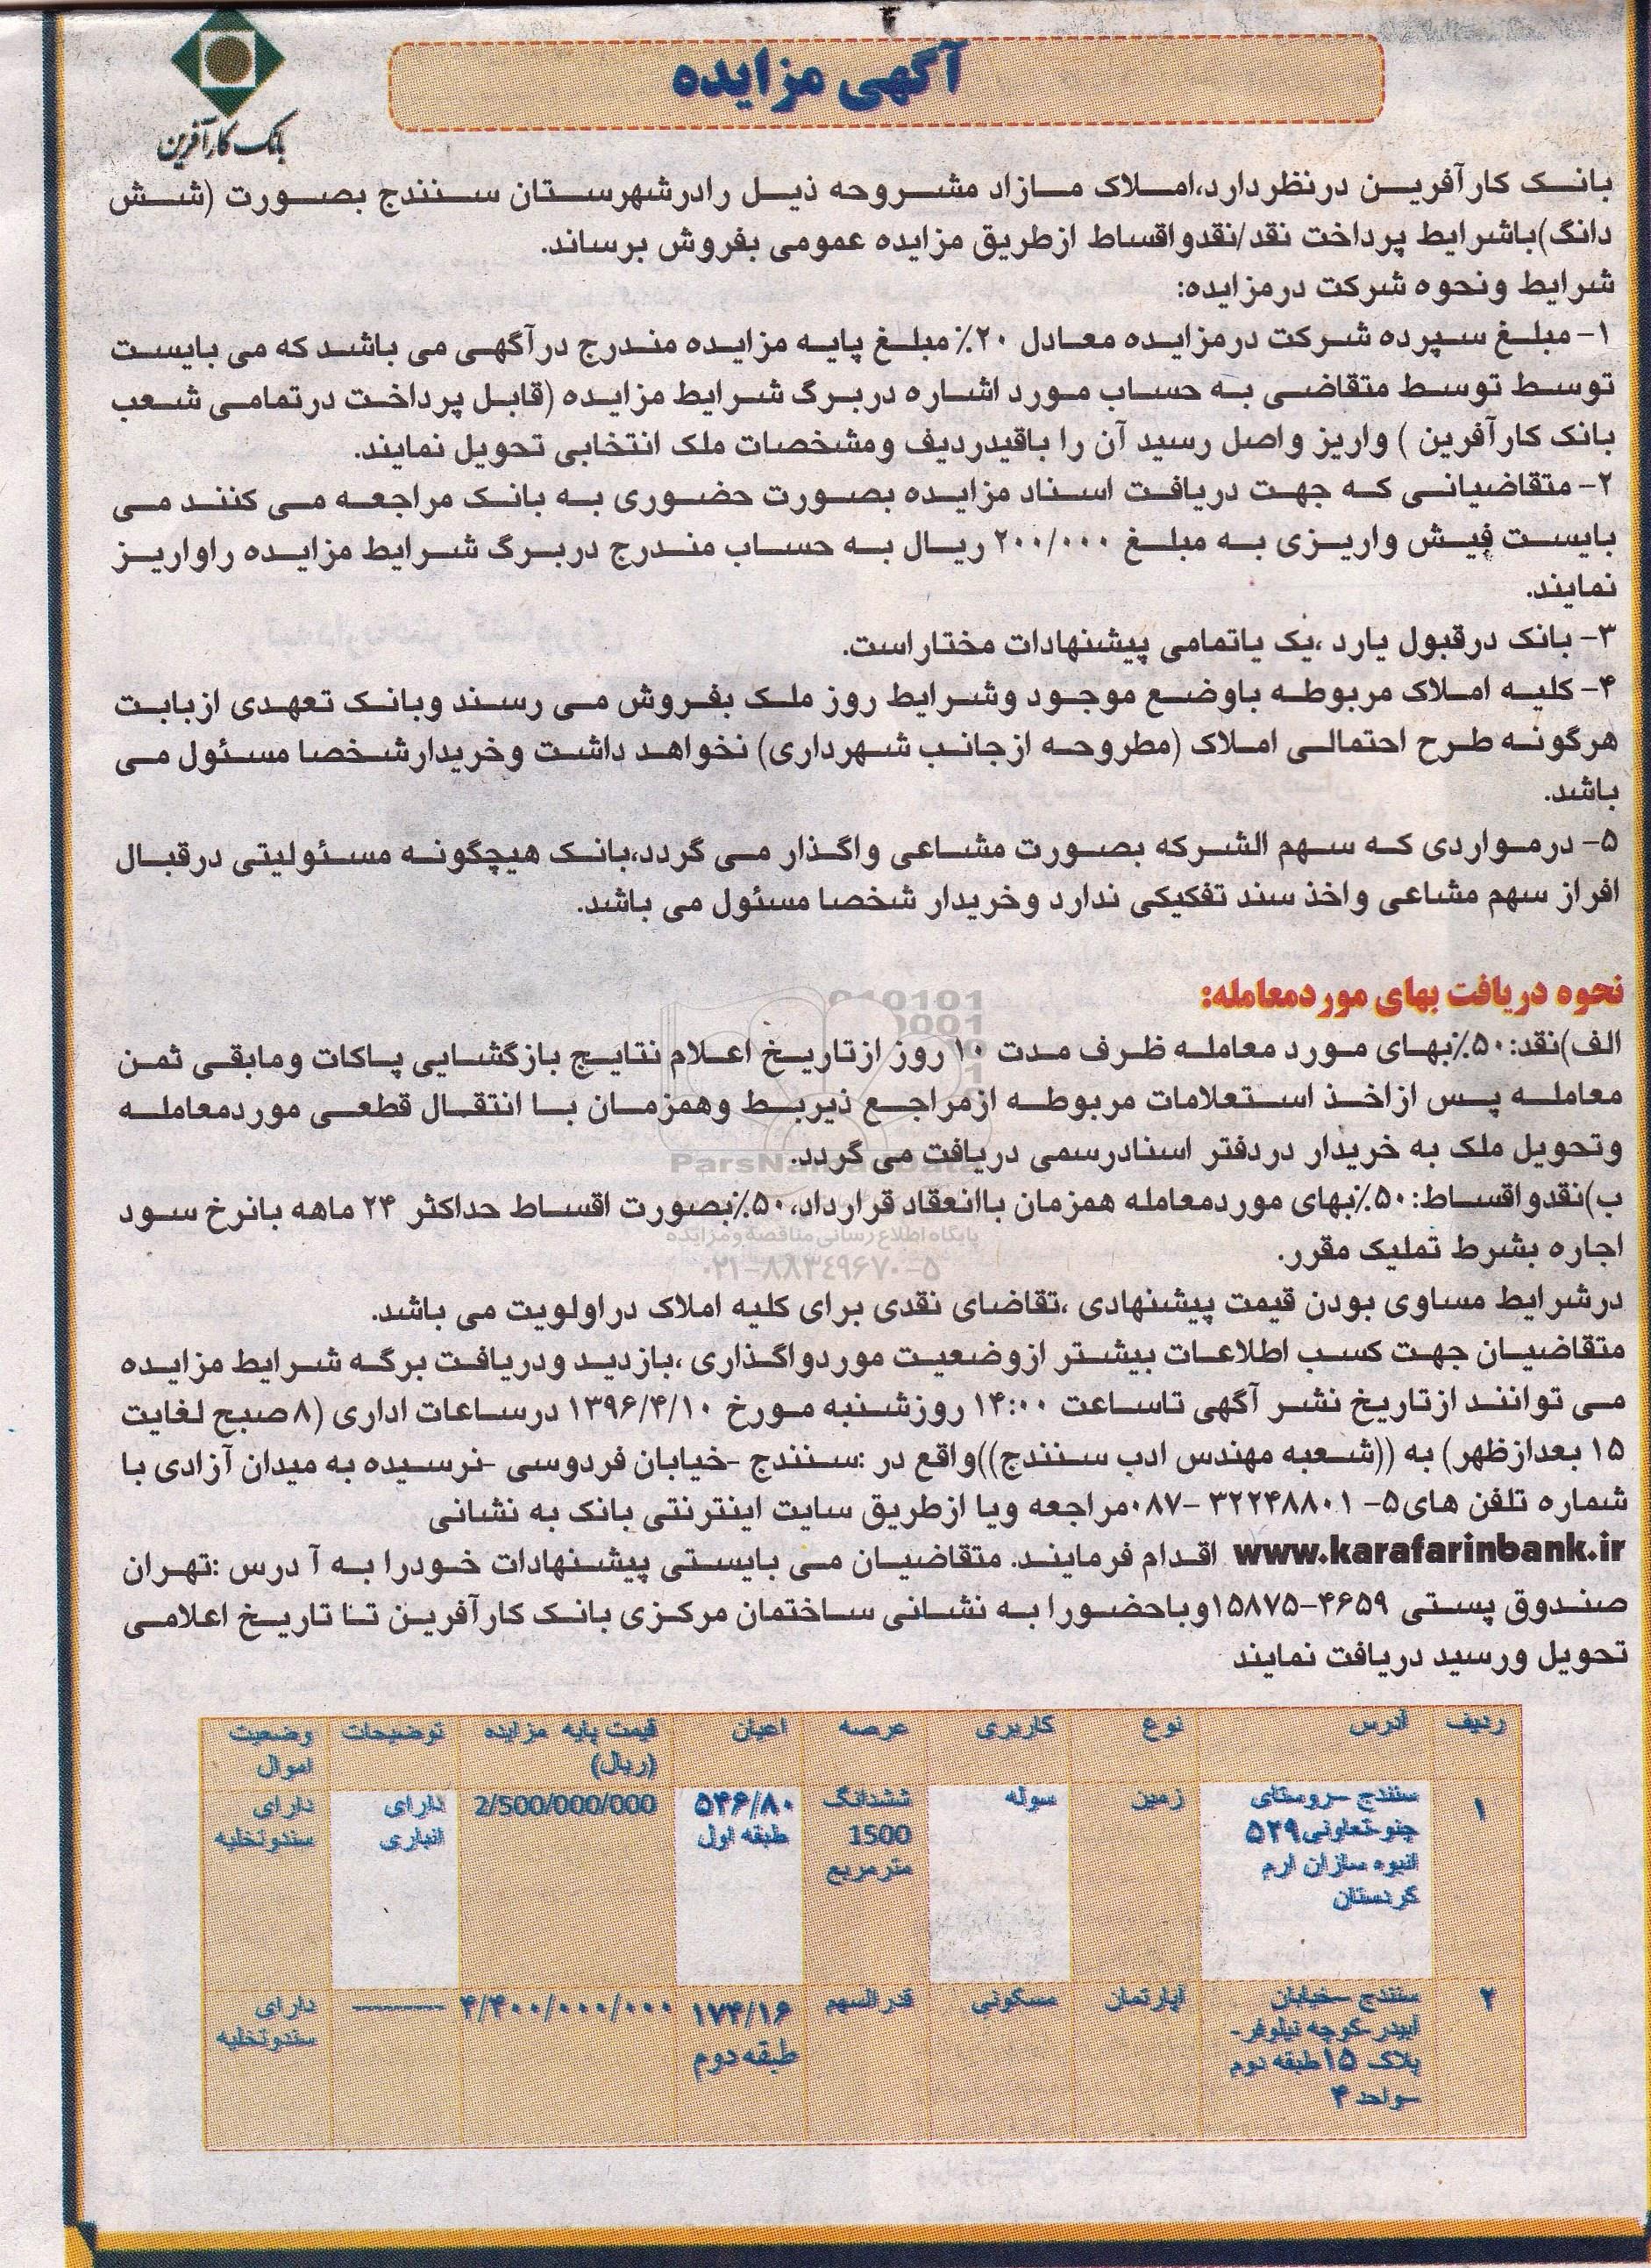 آگهی مزایده
بانک کارآفرین
بانک کارآفرین درنظردارد،املاک مازاد مشروحه ذیل رادرشهرستان سنندج بصورت (شش
دانگ)باشرایط پرداخت نقد/نقدواقساط ازطریق مزایده عمومی بفروش برساند.
شرایط ونحوه شرکت درمزایده:
۱- مبلغ سپرده شرکت درمزایده معادل ۲۰٪ مبلغ پایه مزایده مندرج درآگهی می باشد که می بایست
توسط توسط متقاضی به حساب مورد اشاره دربرگ شرایط مزایده (قابل پرداخت درتمامی شعب
بانک کارآفرین ) واریز واصل رسید آن را باقیدردیف ومشخصات ملک انتخابی تحویل نمایند.
۲- متقاضیانی که جهت دریافت اسناد مزایده بصورت حضوری به بانک مراجعه می کنند می
بایست فیش واریزی به مبلغ ۲۰۰/۰۰۰ ریال به حساب مندرج دربرگ شرایط مزایده راواریز
نمایند.
۳- بانک درقبول یارد ،یک یاتمامی پیشنهادات مختاراست.
۴- کلیه املاک مربوطه باوضع موجود وشرایط روز ملک بفروش می رسند وبانک تعهدی ازبابت
هرگونه طرح احتمالی املاک (مطروحه ازجانب شهرداری) نخواهد داشت وخریدارشخصا مسئول می
باشد.
۵- درمواردی که سهم الشرکه بصورت مشاعی واگذار می گردد،بانک هیچگونه مسئولیتی درقبال
افراز سهم مشاعی واخذ سند تفکیکی ندارد وخریدار شخصا مسئول می باشد.
نحوه دریافت بهای موردمعامله:
الف)نقد:۵۰٪بهای مورد معامله ظرف مدت ۱۰ روز ازتاریخ اعلام نتایج بازگشایی پاکات ومابقی ثمن
معامله پس ازاخذ استعلامات مربوطه ازمراجع ذیربط وهمزمان با انتقال قطعی موردمعامله
وتحویل ملک به خریدار دردفتر اسنادرسمی دریافت می گردد.
ب)نقدواقساط:۵۰٪بهای موردمعامله همزمان باانعقاد قرارداد،۵۰٪بصورت اقساط حداکثر ۲۴ ماهه بانرخ سود
اجاره بشرط تملیک مقرر.
درشرایط مساوی بودن قیمت پیشنهادی ،تقاضای نقدی برای کلیه املاک دراولویت می باشد.
متقاضیان جهت کسب اطلاعات بیشتر ازوضعیت موردواگذاری ،بازدید ودریافت برگه شرایط مزایده
می توانند ازتاریخ نشر آگهی تاساعت ۱۴:۰۰ روزشنبه مورخ ۱۳۹۶/۴/۱۰ درساعات اداری (۸صبح لغایت
۱۵ بعدازظهر) به ((شعبه مهندس ادب سنندج))واقع در :سنندج -خیابان فردوسی -نرسیده به میدان آزادی با
شماره تلفن های۵- ۳۲۲۴۸۸۰۱ -۰۸۷مراجعه ویا ازطریق سایت اینترنتی بانک به نشانی
www.karafarinbank.ir اقدام فرمایند. متقاضیان می بایستی پیشنهادات خودرا به آ درس :تهران
صندوق پستی ۴۶۵۹-۱۵۸۷۵ویاحضورا به نشانی ساختمان مرکزی بانک کارآفرین تا تاریخ اعلامی
تحویل ورسید دریافت نمایند
ParsN
پایگاه اطلاع رسانی مناقصه و مزایده
۰۲۱-۸۸۳۴۹۶۷۰-۵
ردیف آدرس نوع کاربری عرصه اعیان قیمت پایه مزایده توضیحات وضعیت
(ریال) اموال
۱ سنندج -روستای زمین سوله ششدانگ ۵۴۶/۸۰ 2/500/000/000 دارای دارای
چنو-تعاونی۵۲۹ 1500 طبقه اول انباری سندوتخلیه
انبوه سازان ارم مترمربع
کردستان
۲ سنندج -خیابان آپارتمان مسکونی قدرالسهم ۱۷۴/۱۶ ۴/۴۰۰/۰۰۰/۰۰۰ --------- دارای
آبیدر-کوچه نیلوفر- طبقه دوم سندوتخلیه
پلاک ۱۵طبقه دوم
-واحد ۴